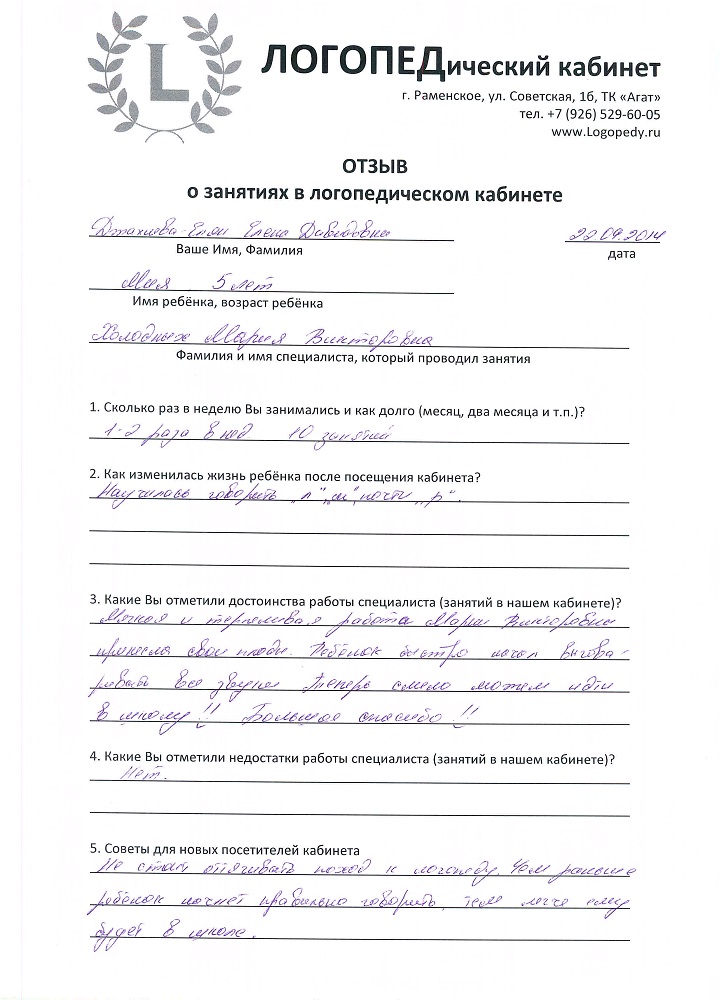 L
ЛОГОПЕДический кабинет
г. Раменское, ул. Советская, 1б, ТК «Агат»
тел. +7 (926) 529-60-05
www.Logopedy.ru
ОТЗЫВ
о занятиях в логопедическом кабинете
Елена Давидовна 22.09.2014
Ваше Имя, Фамилия дата
Мия 5 лет
Имя ребёнка, возраст ребёнка
Холодных Мария Викторовна
Фамилия и имя специалиста, который проводил занятия
1. Сколько раз в неделю Вы занимались и как долго (месяц, два месяца и т.п.)?
1-2 раза в нед 10 занятий
2. Как изменилась жизнь ребёнка после посещения кабинета?
Научилась говорить „л“, „ш“, почти „р“.
3. Какие Вы отметили достоинства работы специалиста (занятий в нашем кабинете)?
Мягкая и терпеливая работа Марии Викторовны
принесла свои плоды. Ребёнок быстро начал выгова-
ривать все звуки Теперь смело можем идти
в школу!! Большое спасибо!!
4. Какие Вы отметили недостатки работы специалиста (занятий в нашем кабинете)?
Нет.
5. Советы для новых посетителей кабинета
Не стоит оттягивать поход к логопеду. Чем раньше
ребёнок начнет правильно говорить, тем легче ему
будет в школе.